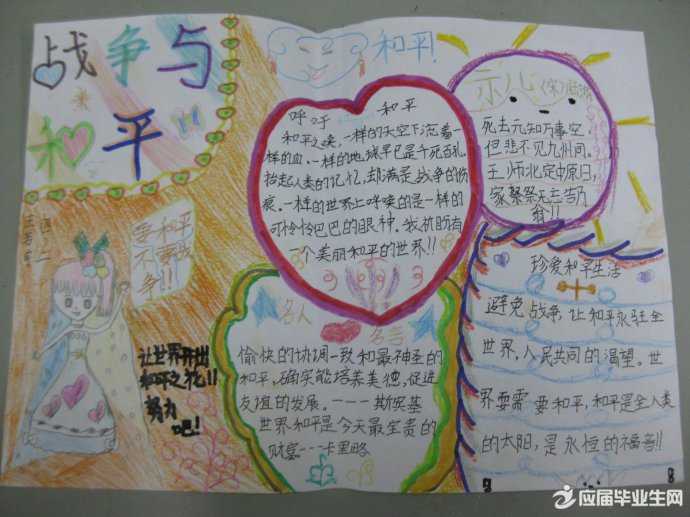 战争与
和平!!
和平!
呼吁 和平
和平之唤,一样的天空下流着一
样的血,一样的地球早已是千疮百孔
抬起人类的记忆,却满是战争的伤
痕。一样的世界上呼唤的是一样的
可怜巴巴的眼神。我祈盼有
一个美丽和平的世界!!
示儿(宋)陆游
死去元知万事空
但悲不见九州同。
王师北定中原日,
家祭无忘告乃
翁!!
要和平
不要战
争!!
让世界开出
和平之花!!
努力
吧!
名人 名言
愉快的协调一致和最神圣的
和平,确实能培养美德,促进
友谊的发展。---斯宾基
世界和平是今天最宝贵的
财富---卡里略
珍爱和平生活
避免战争,让和平永驻全
世界,人民共同的渴望。世
界要需要和平,和平是全人类
的太阳,是永恒的福音!!
应届毕业生网